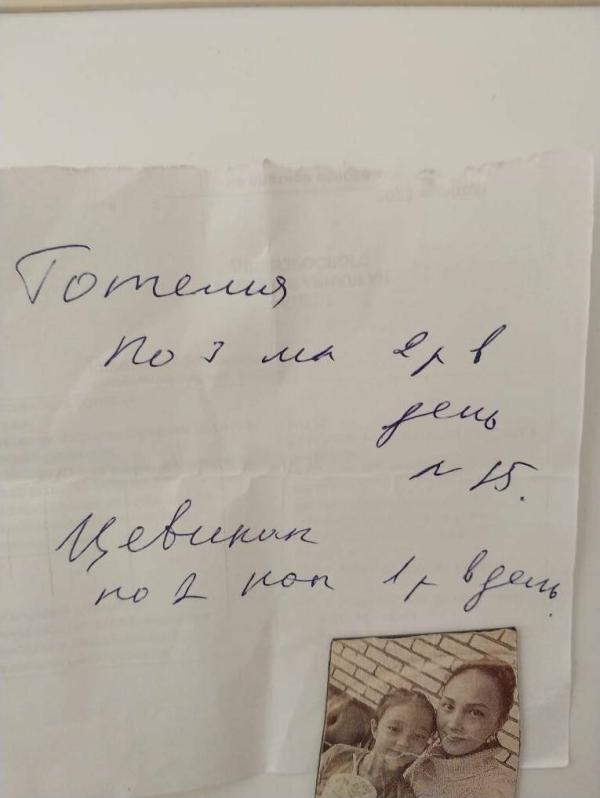 Тотелия
по 3 мл 2 р в
день
N 15.
Цевикап
по 2 кап 1 р в день.